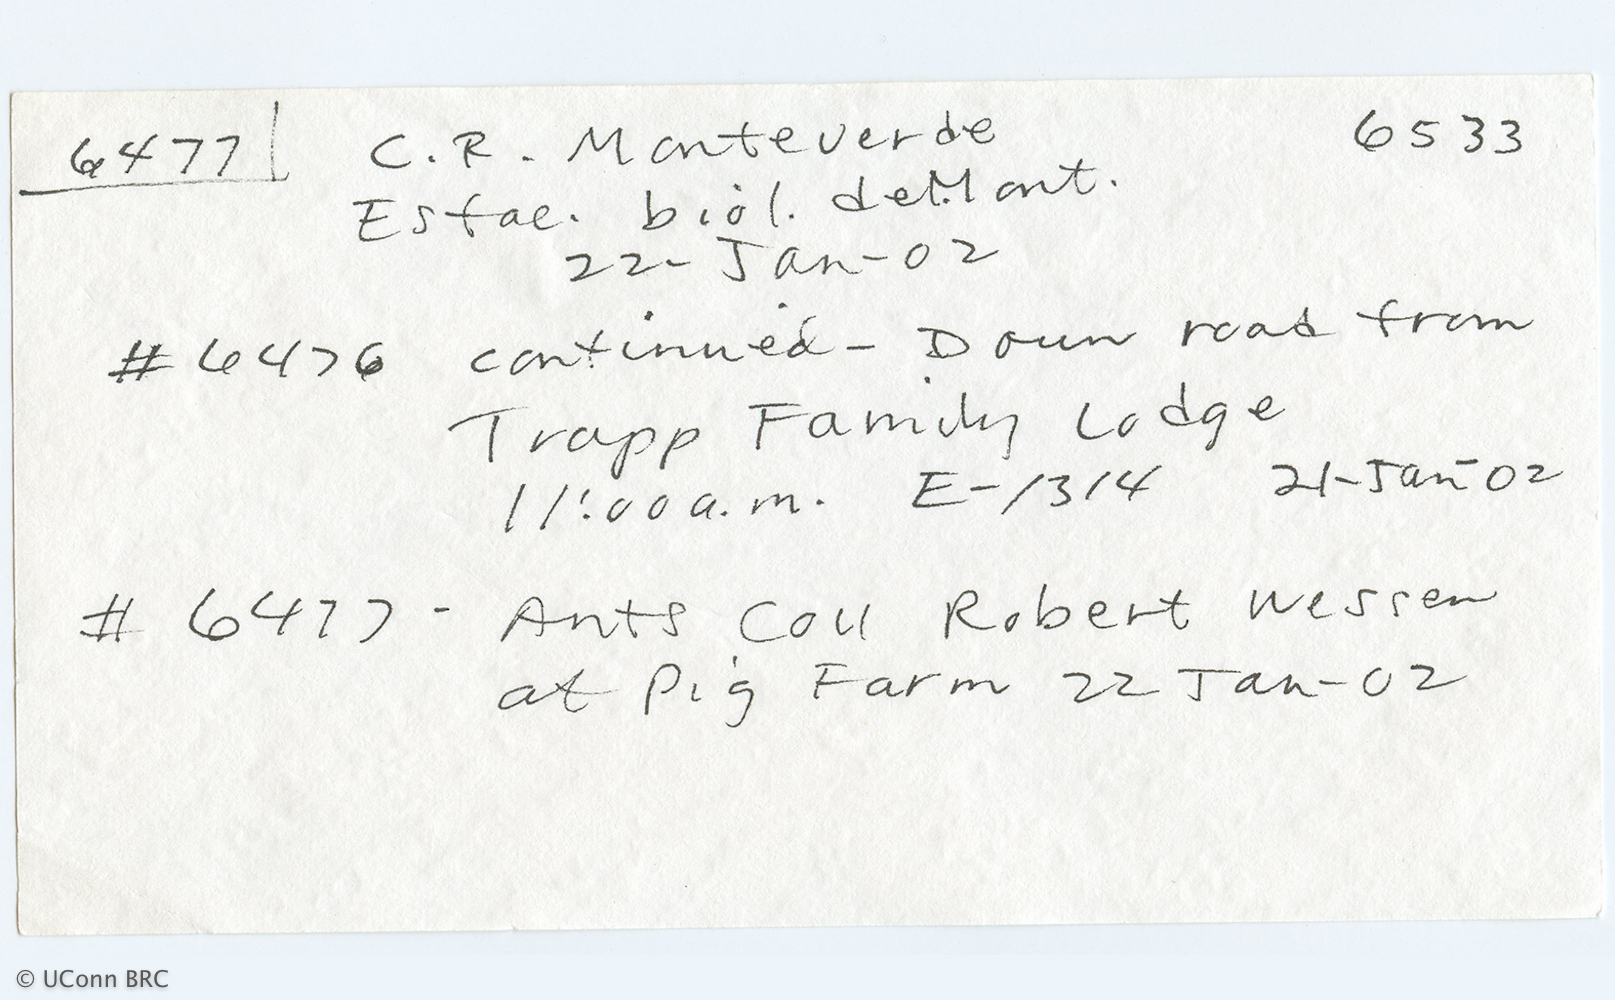 6477 C.R. Monteverde 6533
Estac. biol. de Mont.
22-Jan-02
#6476 continued - Down road from
Trapp Family Lodge
11:00 a.m. E-1314 21-Jan-02
#6477 - Ants Coll Robert Wessen
at Pig Farm 22 Jan-02
© UConn BRC